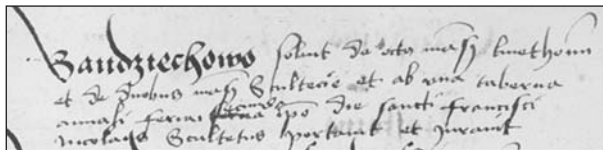 Bandziechowo solvit de octo mansis kmethonum
et de duobus mansis Scultecie et ab una taberna
feria secunda ipso die sancti francisci
Nicolaus Scultetus portavit et iuravit